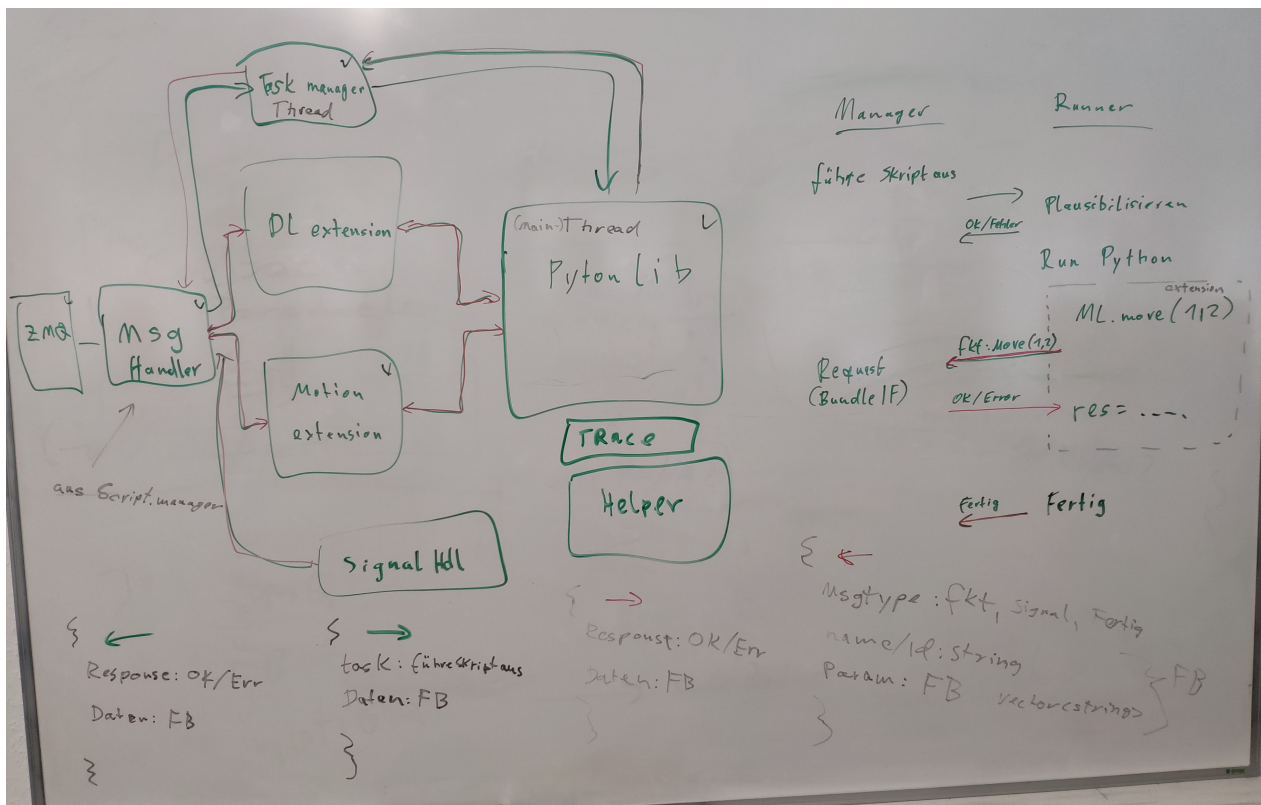 Task manager
Thread
DL extension
(main-)Thread
Pyton lib
ZMQ
Msg
Handler
Motion
extension
TRace
Helper
aus Script.manager
Signal Hdl
Manager
Runner
führe Skript aus
Plausibilisieren
OK/Fehler
Run Python
extension
ML.move(1,2)
fkt:Move(1,2)
Request
(Bundle IF)
OK/Error
res= ....
Fertig
Fertig
{
Response: OK/Err
Daten: FB
}
{
task: führeskriptaus
Daten: FB
}
{
Response: OK/Err
Daten: FB
}
{
Msgtype: fkt, Signal, Fertig
name/Id: string
Param: FB vector<string>
} FB
}